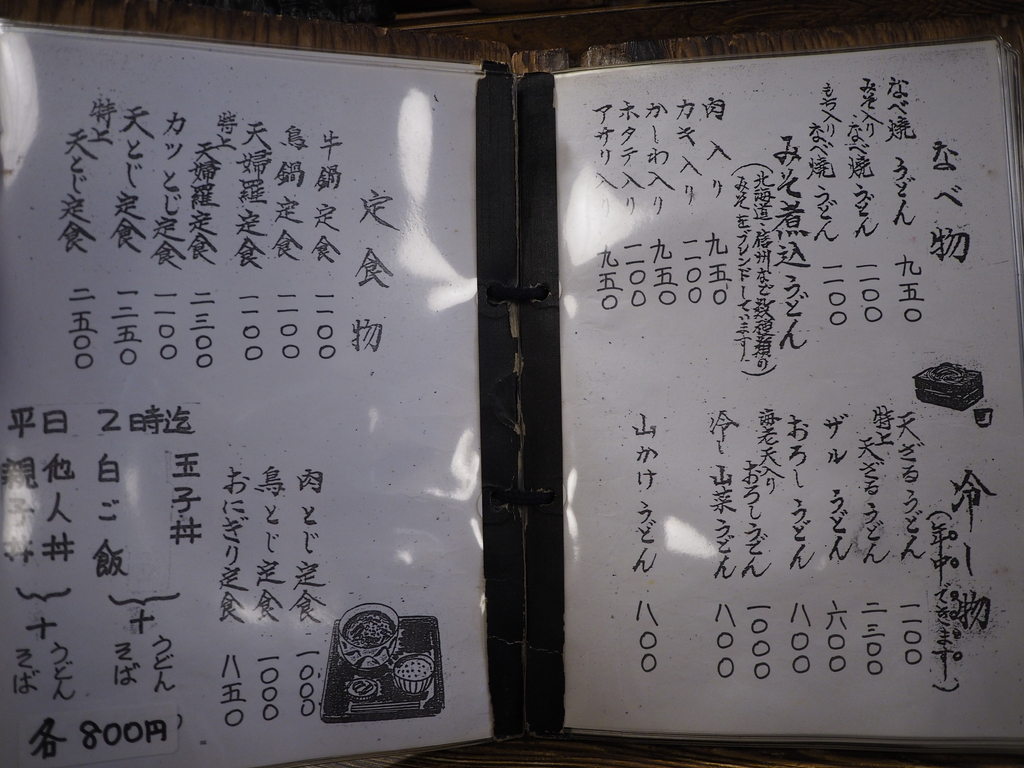 なべ物
なべ焼うどん 九五〇
みそ入りなべ焼うどん 一一〇〇
もち入りなべ焼うどん 一一〇〇
みそ煮込うどん
(北海道・信州など数種類の
みそをブレンドしています!)
肉入り 九五〇
カキ入り 一一〇〇
かしわ入り 九五〇
ホタテ入り 一一〇〇
アサリ入り 九五〇
冷し物
(年中。できます。)
天ざるうどん 一一〇〇
特上天ざるうどん 二三〇〇
ザルうどん 六〇〇
おろしうどん 八〇〇
海老天入りおろしうどん 一〇〇〇
冷し山菜うどん 八〇〇
山かけうどん 八〇〇
定食物
牛鍋定食 一一〇〇
鳥鍋定食 一一〇〇
天婦羅定食 一一〇〇
特上天婦羅定食 二三〇〇
カツとじ定食 一一〇〇
天とじ定食 一三五〇
特上天とじ定食 二五〇〇
肉とじ定食 一〇〇〇
鳥とじ定食 一〇〇〇
おにぎり定食 八五〇
平日 2時迄
玉子丼
白ご飯
+うどん
そば
他人丼
親子丼
+うどん
そば
各 800円